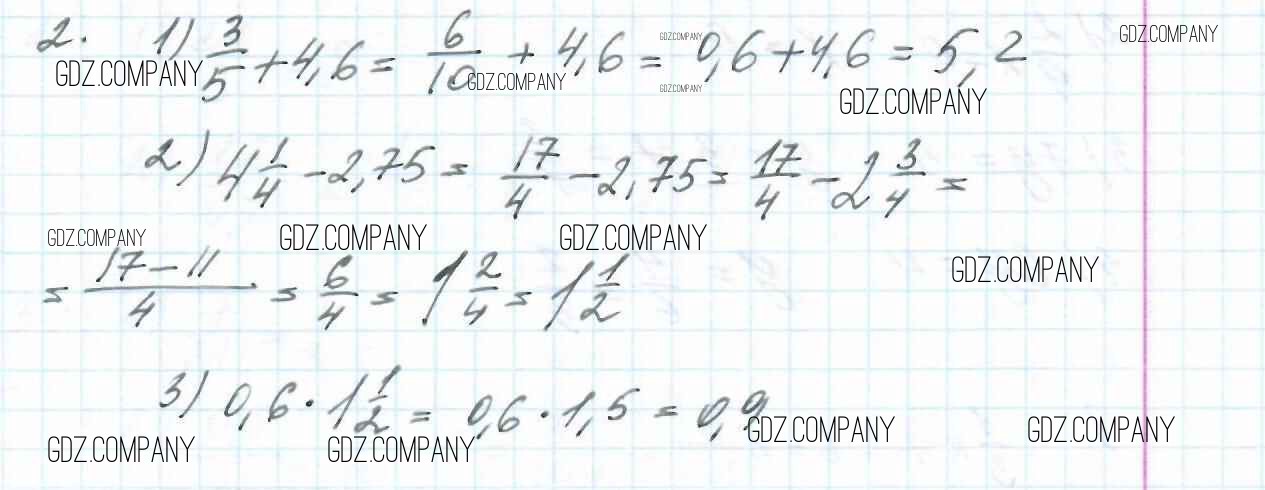 2. 1) 3/5 + 4,6 = 6/10 + 4,6 = 0,6 + 4,6 = 5,2
GDZ.COMPANY GDZ.COMPANY GDZ.COMPANY GDZ.COMPANY GDZ.COMPANY GDZ.COMPANY
2) 4 1/4 - 2,75 = 17/4 - 2,75 = 17/4 - 2 3/4 =
GDZ.COMPANY GDZ.COMPANY GDZ.COMPANY GDZ.COMPANY
= 17 - 11/4 = 6/4 = 1 2/4 = 1 1/2
3) 0,6 · 1 1/2 = 0,6 · 1,5 = 0,9
GDZ.COMPANY GDZ.COMPANY GDZ.COMPANY GDZ.COMPANY